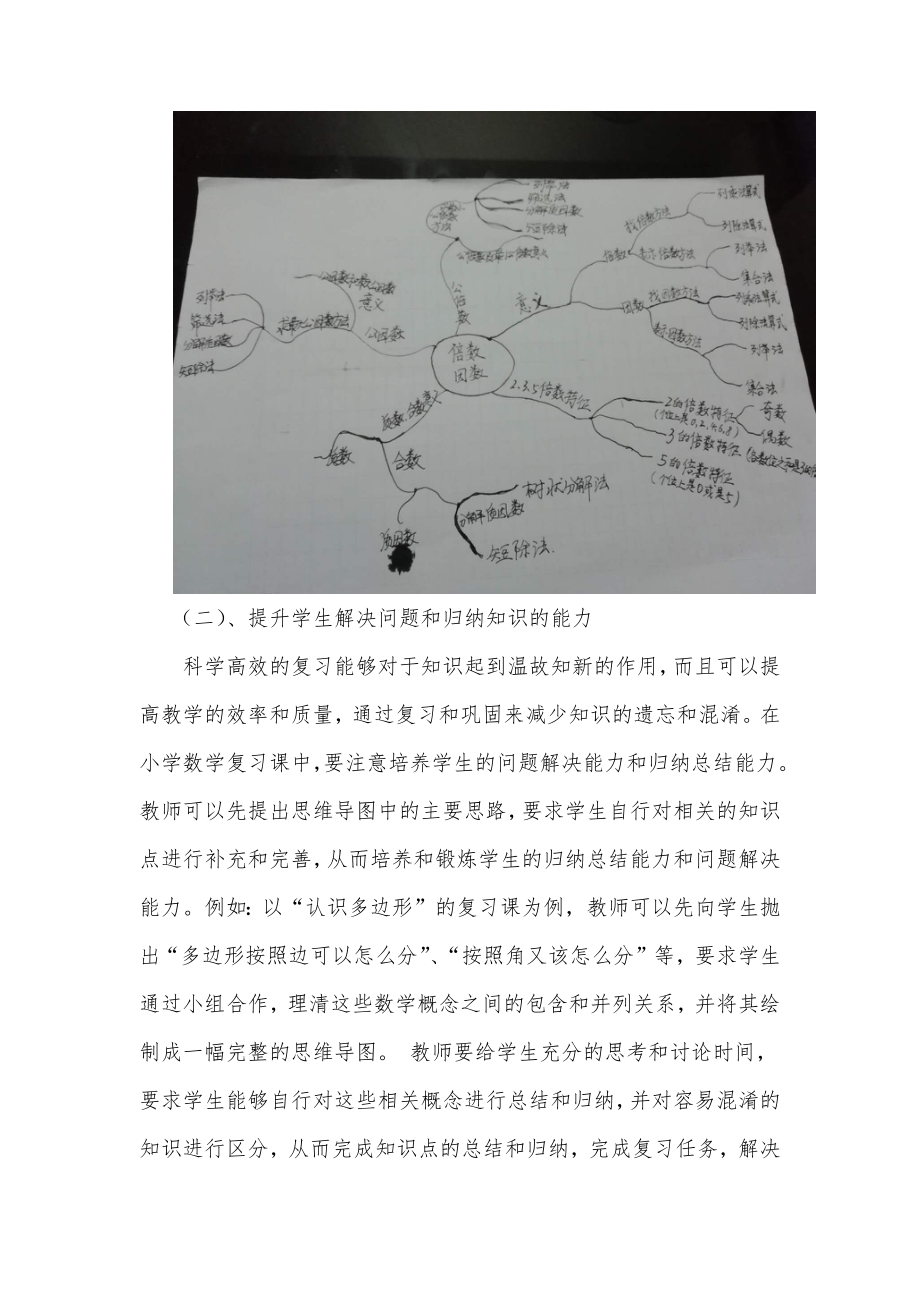 列举法
筛选法
分解质因数
短除法
公倍数
意义
倍数
找倍数方法
列乘法算式
列除法算式
表示倍数方法
列举法
集合法
因数
找因数方法
列乘法算式
列除法算式
表示因数方法
列举法
集合法
公因数和最大公因数
意义
公因数
求最大公因数方法
列举法
筛选法
分解质因数
短除法
倍数
因数
2.3.5倍数特征
2的倍数特征
(个位上是0,2,4,6,8)
奇数
偶数
3的倍数特征
5的倍数特征
(个位上是0或是5)
质数 合数意义
质数
合数
质因数
分解质因数
树状分解法
短除法.
（二）、提升学生解决问题和归纳知识的能力
科学高效的复习能够对于知识起到温故知新的作用，而且可以提
高教学的效率和质量，通过复习和巩固来减少知识的遗忘和混淆。在
小学数学复习课中，要注意培养学生的问题解决能力和归纳总结能力。
教师可以先提出思维导图中的主要思路，要求学生自行对相关的知识
点进行补充和完善，从而培养和锻炼学生的归纳总结能力和问题解决
能力。例如：以“认识多边形”的复习课为例，教师可以先向学生抛
出“多边形按照边可以怎么分”、“按照角又该怎么分”等，要求学生
通过小组合作，理清这些数学概念之间的包含和并列关系，并将其绘
制成一幅完整的思维导图。 教师要给学生充分的思考和讨论时间，
要求学生能够自行对这些相关概念进行总结和归纳，并对容易混淆的
知识进行区分，从而完成知识点的总结和归纳，完成复习任务，解决